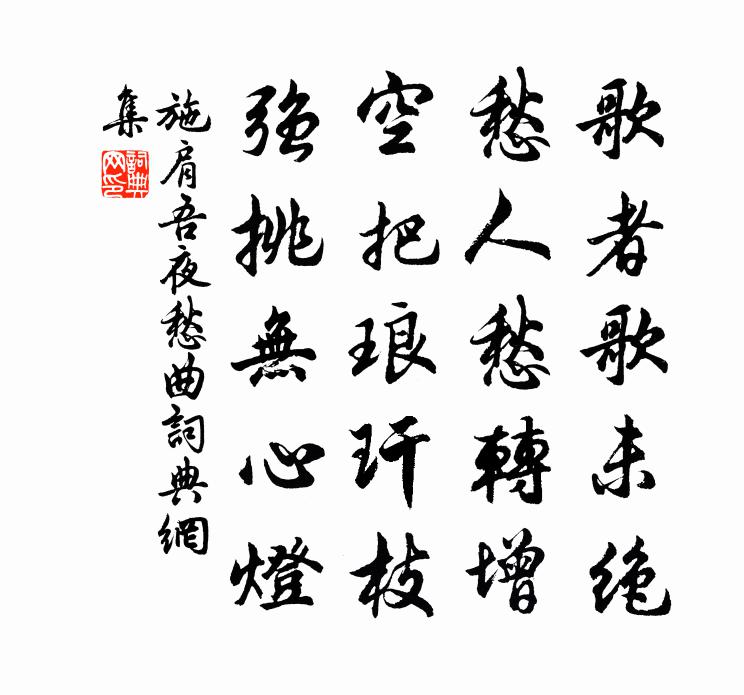 歌者歌未絶
愁人愁轉增
空把琅玕枝
強挑無心燈
施肩吾夜愁曲詞典網
集
詞典
网印